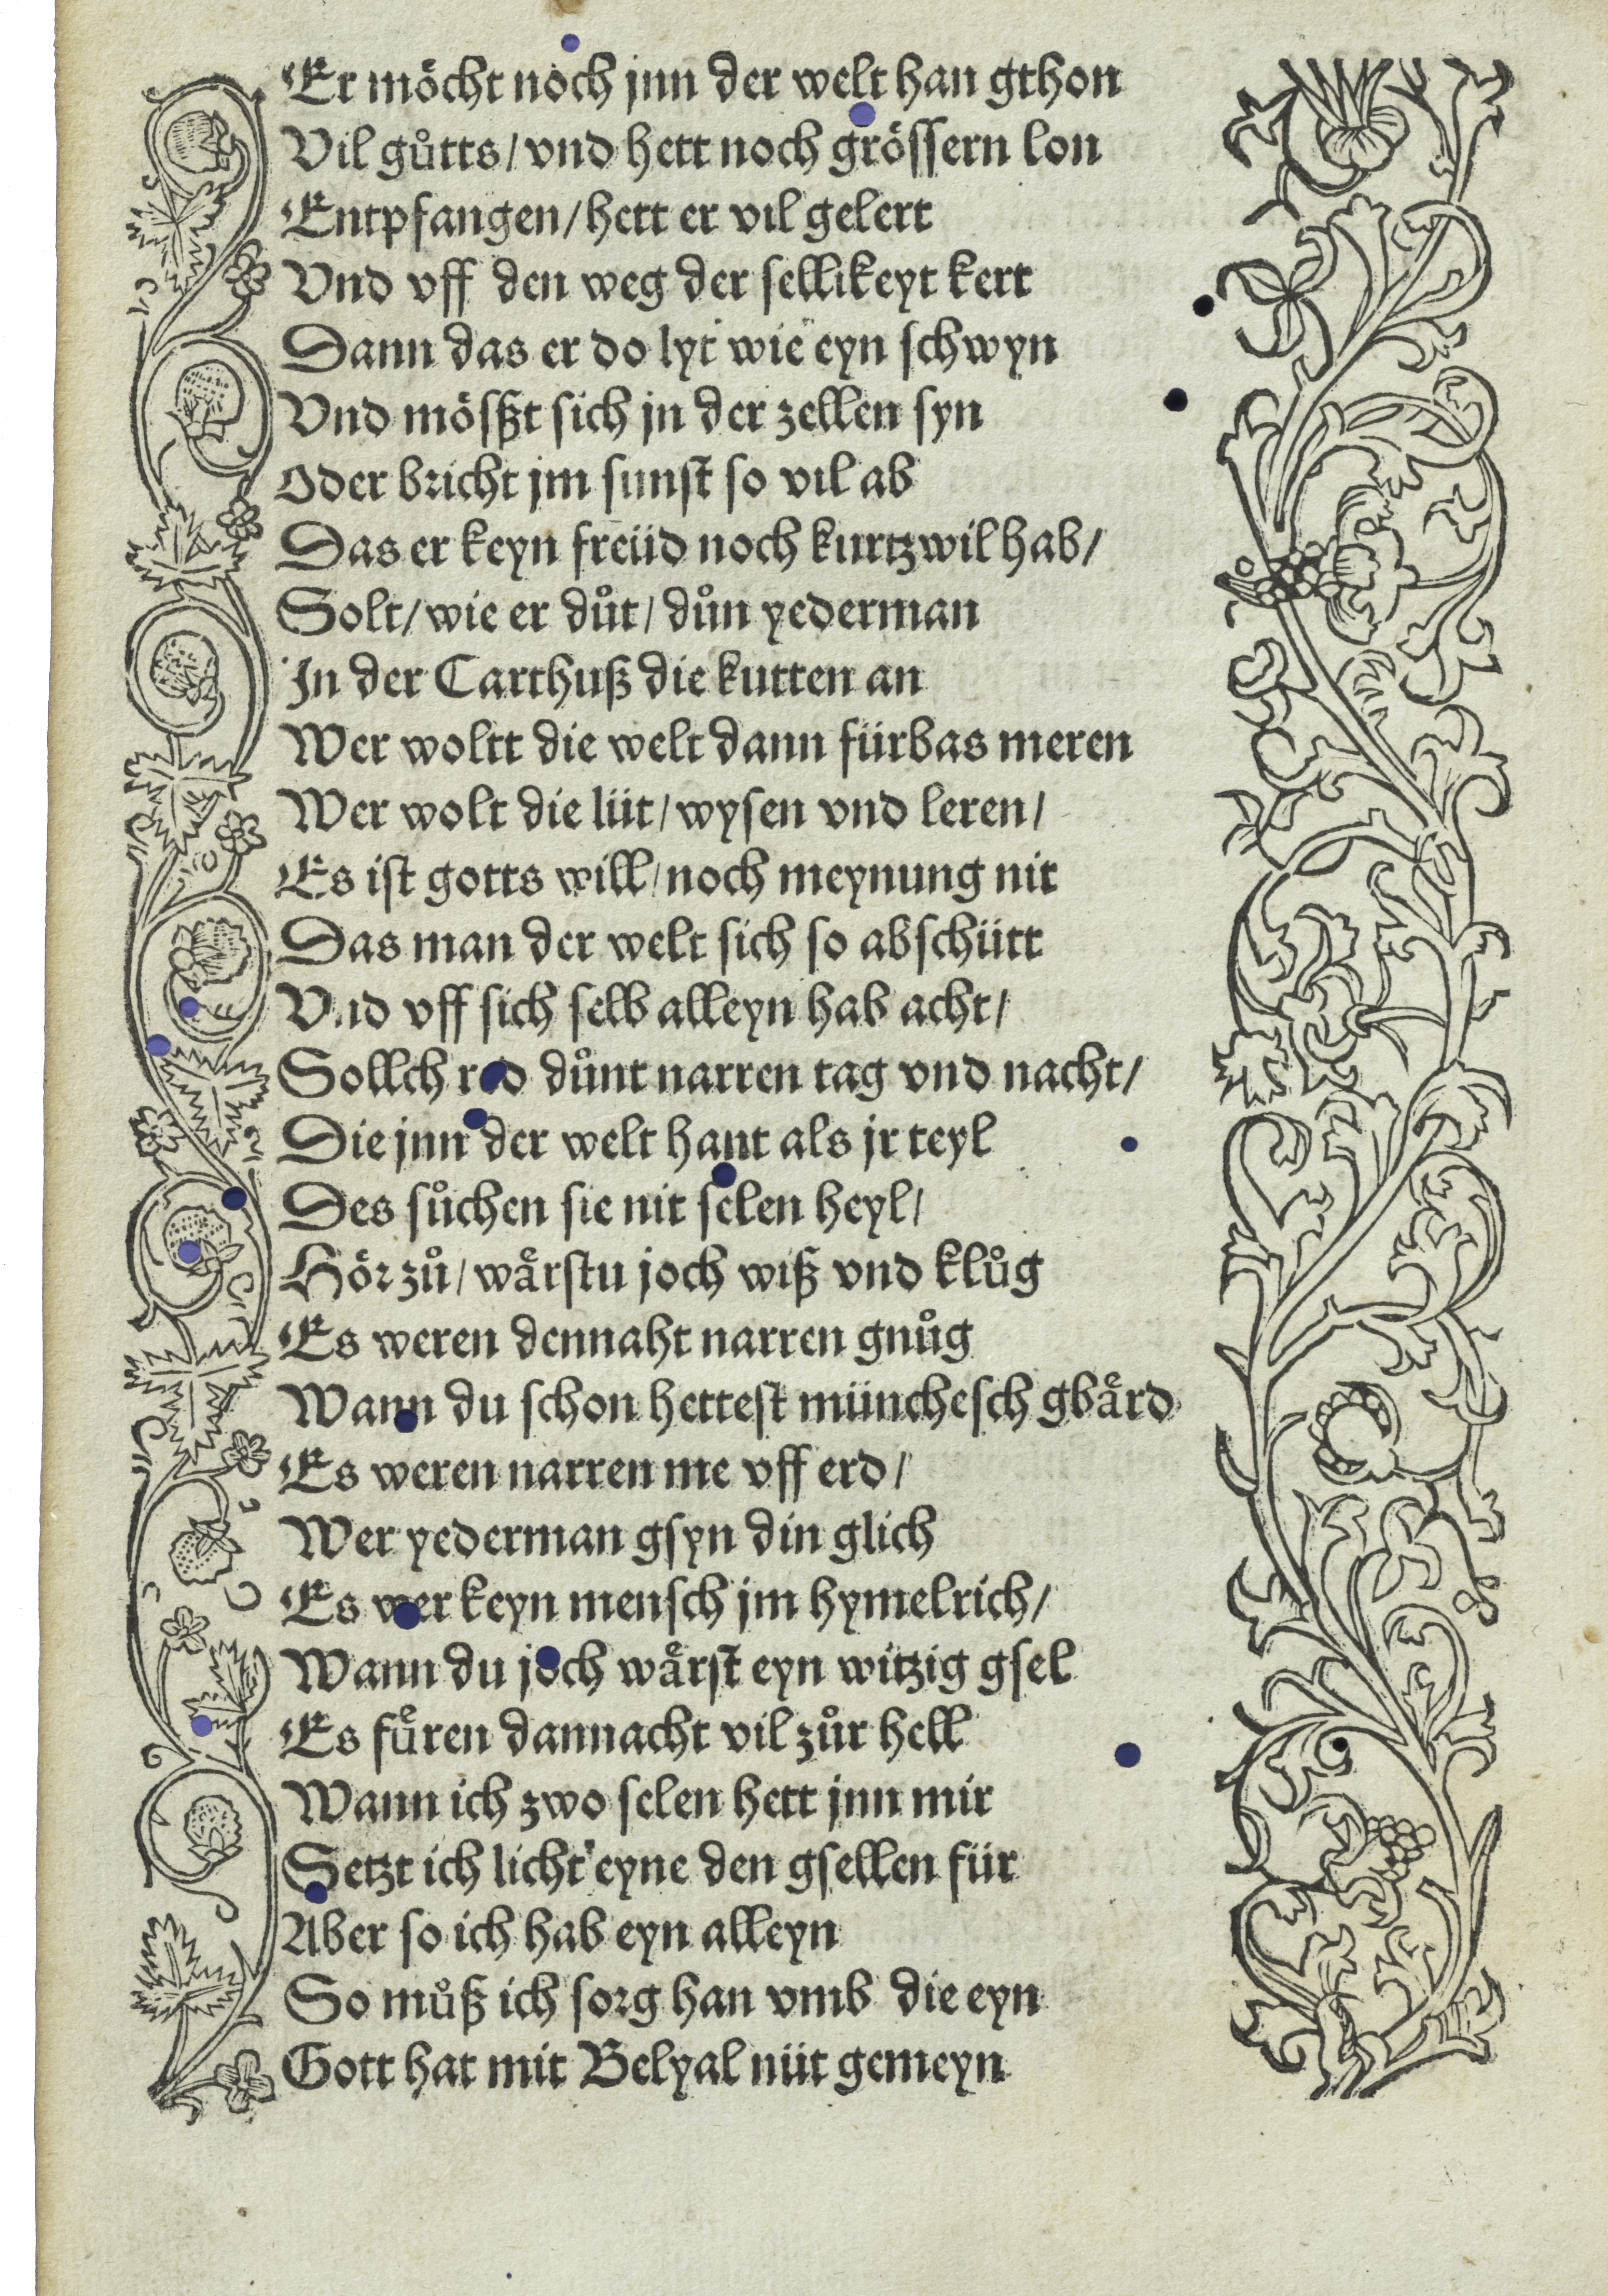 Er möcht noch jnn der welt han gthon
Vil gůtts / vnd hett noch grössern lon
Entpfangen / hett er vil gelert
Vnd vff den weg der sellikeyt kert
Dann das er do lyt wie eyn schwyn
Vnd mößt sich jn der zellen syn
Oder bricht jm sunst so vil ab
Das er keyn freüd noch kurtzwil hab /
Solt / wie er důt / důn yederman
In der Carthuß die kutten an
Wer woltt die welt dann fürbas meren
Wer wolt die lüt / wysen vnd leren /
Es ist gotts will / noch meynung nit
Das man der welt sich so abschütt
Vnd vff sich selb alleyn hab acht /
Sollch red důnt narren tag vnd nacht /
Die jnn der welt hant als jr teyl
Des sůchen sie nit selen heyl /
Hör zů / wårstu joch wiß vnd klůg
Es weren dennaht narren gnůg
Wann du schon hettest münchesch gbård
Es weren narren me vff erd /
Wer yederman gsyn din glich
Es wer keyn mensch jm hymelrich /
Wann du joch wårst eyn witzig gsel
Es fůren dannacht vil zůr hell
Wann ich zwo selen hett jnn mir
Setzt ich licht eyne den gsellen für
Aber so ich hab eyn alleyn
So můß ich sorg han vmb die eyn
Gott hat mit Belyal nüt gemeyn